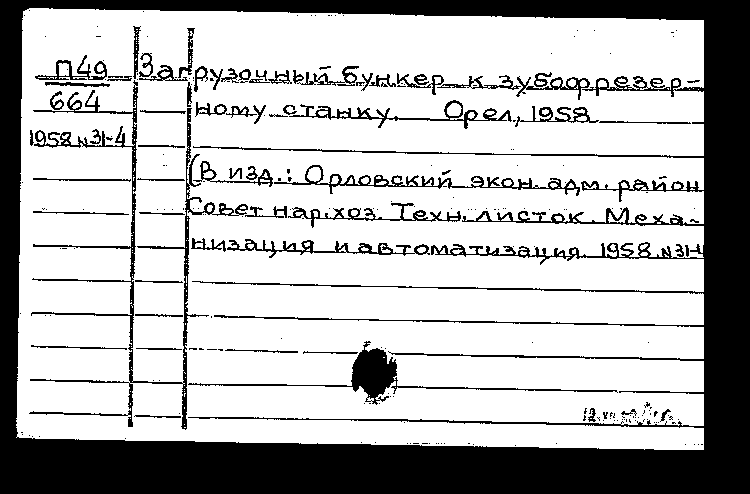 П49
664
1958 №31-4
Загрузочный бункер к зубофрезер-
ному станку. Орел, 1958
(В изд.: Орловский экон. адм. район
Совет нар. хоз. Техн. листок. Меха-
низация и автоматизация. 1958. №31-4